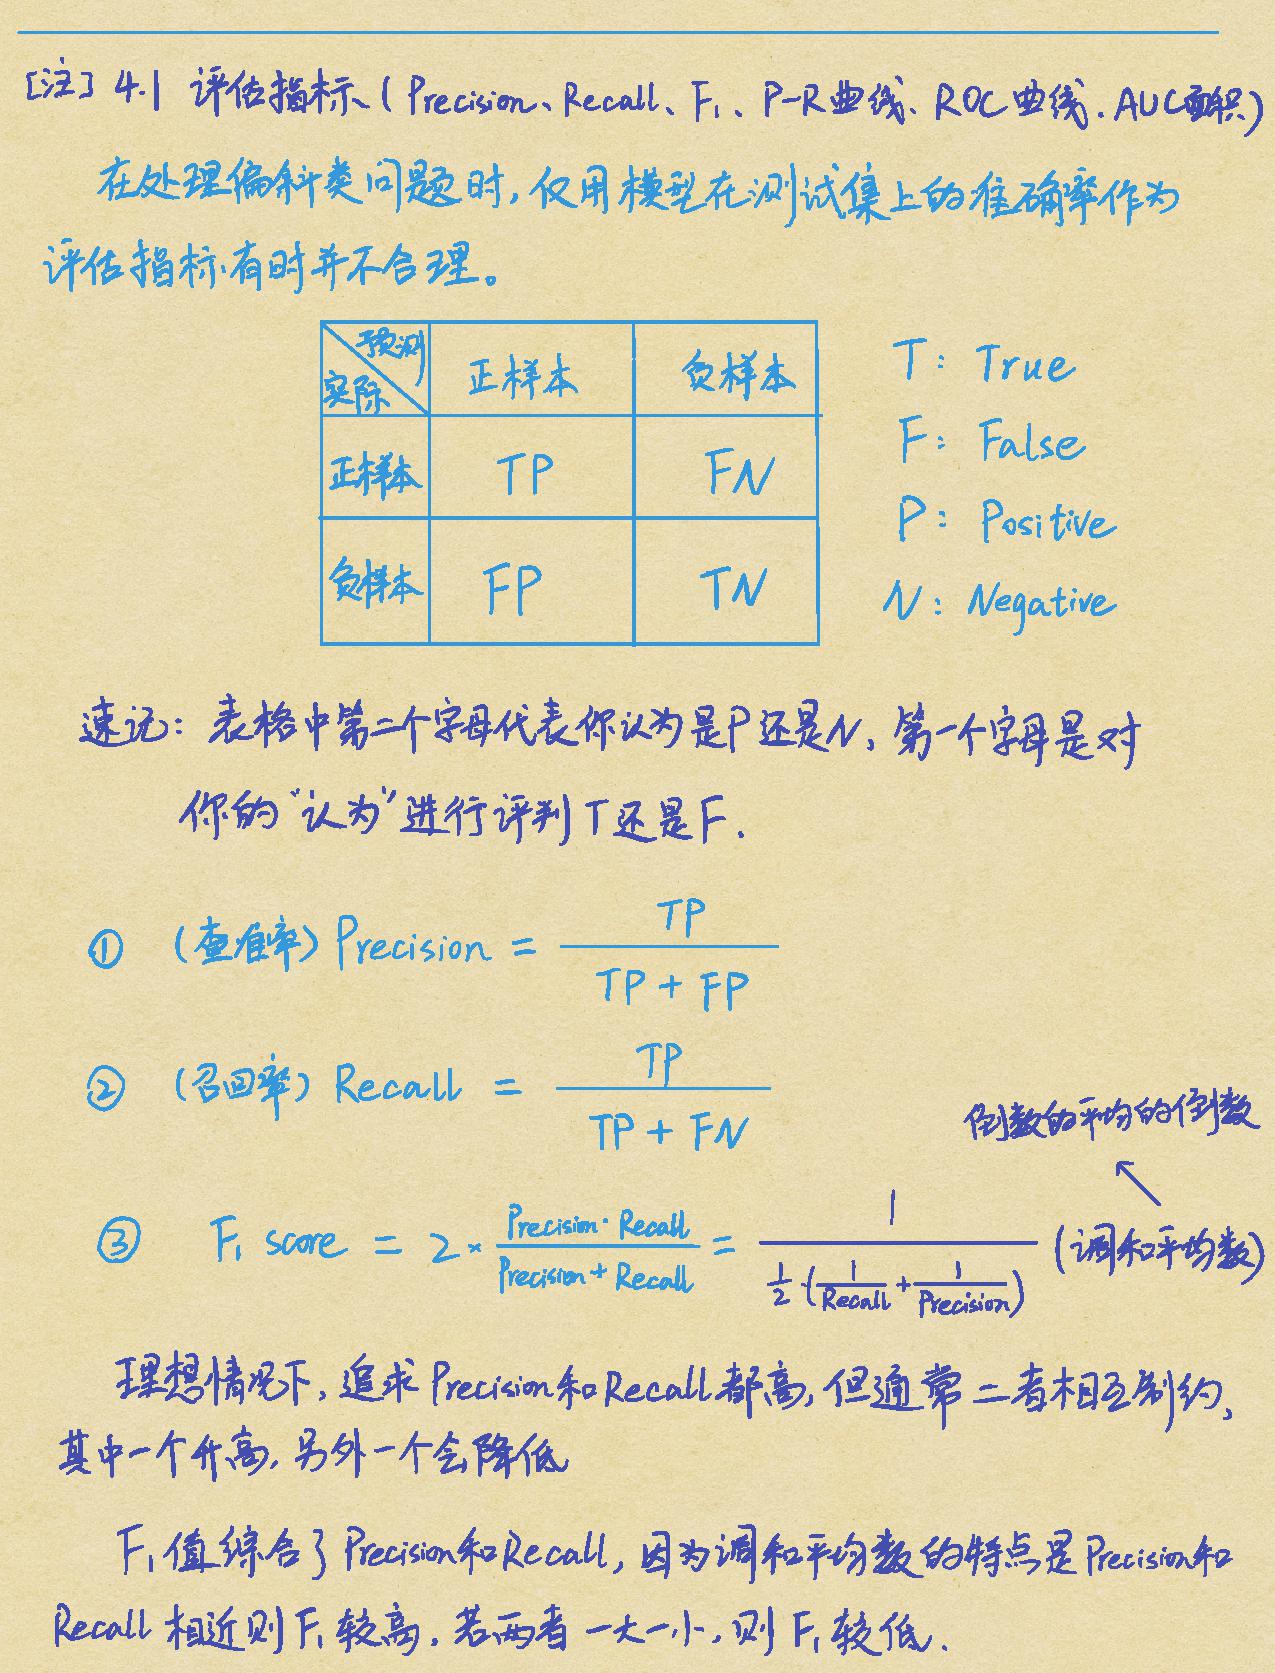 [注] 4.1 评估指标、(Precision、Recall、F₁、P-R曲线、ROC曲线、AUC面积)
在处理偏斜类问题时,仅用模型在测试集上的准确率作为
评估指标有时并不合理。
预测
实际
正样本
负样本
T: True
F: False
正样本
TP
FN
P: Positive
负样本
FP
TN
N: Negative
速记: 表格中第二个字母代表你认为是P还是N, 第一个字母是对
你的“认为”进行评判T还是F.
① (查准率) Precision = TP / (TP + FP)
② (召回率) Recall = TP / (TP + FN)
倒数的平均的倒数
③ F₁ score = 2 · (Precision · Recall) / (Precision + Recall) = 1 / (1/2 · (1/Recall + 1/Precision)) (调和平均数)
理想情况下, 追求Precision和Recall都高, 但通常二者相互制约,
其中一个升高, 另外一个会降低
F₁值综合了Precision和Recall, 因为调和平均数的特点是Precision和
Recall相近则F₁较高, 若两者一大一小, 则F₁较低.